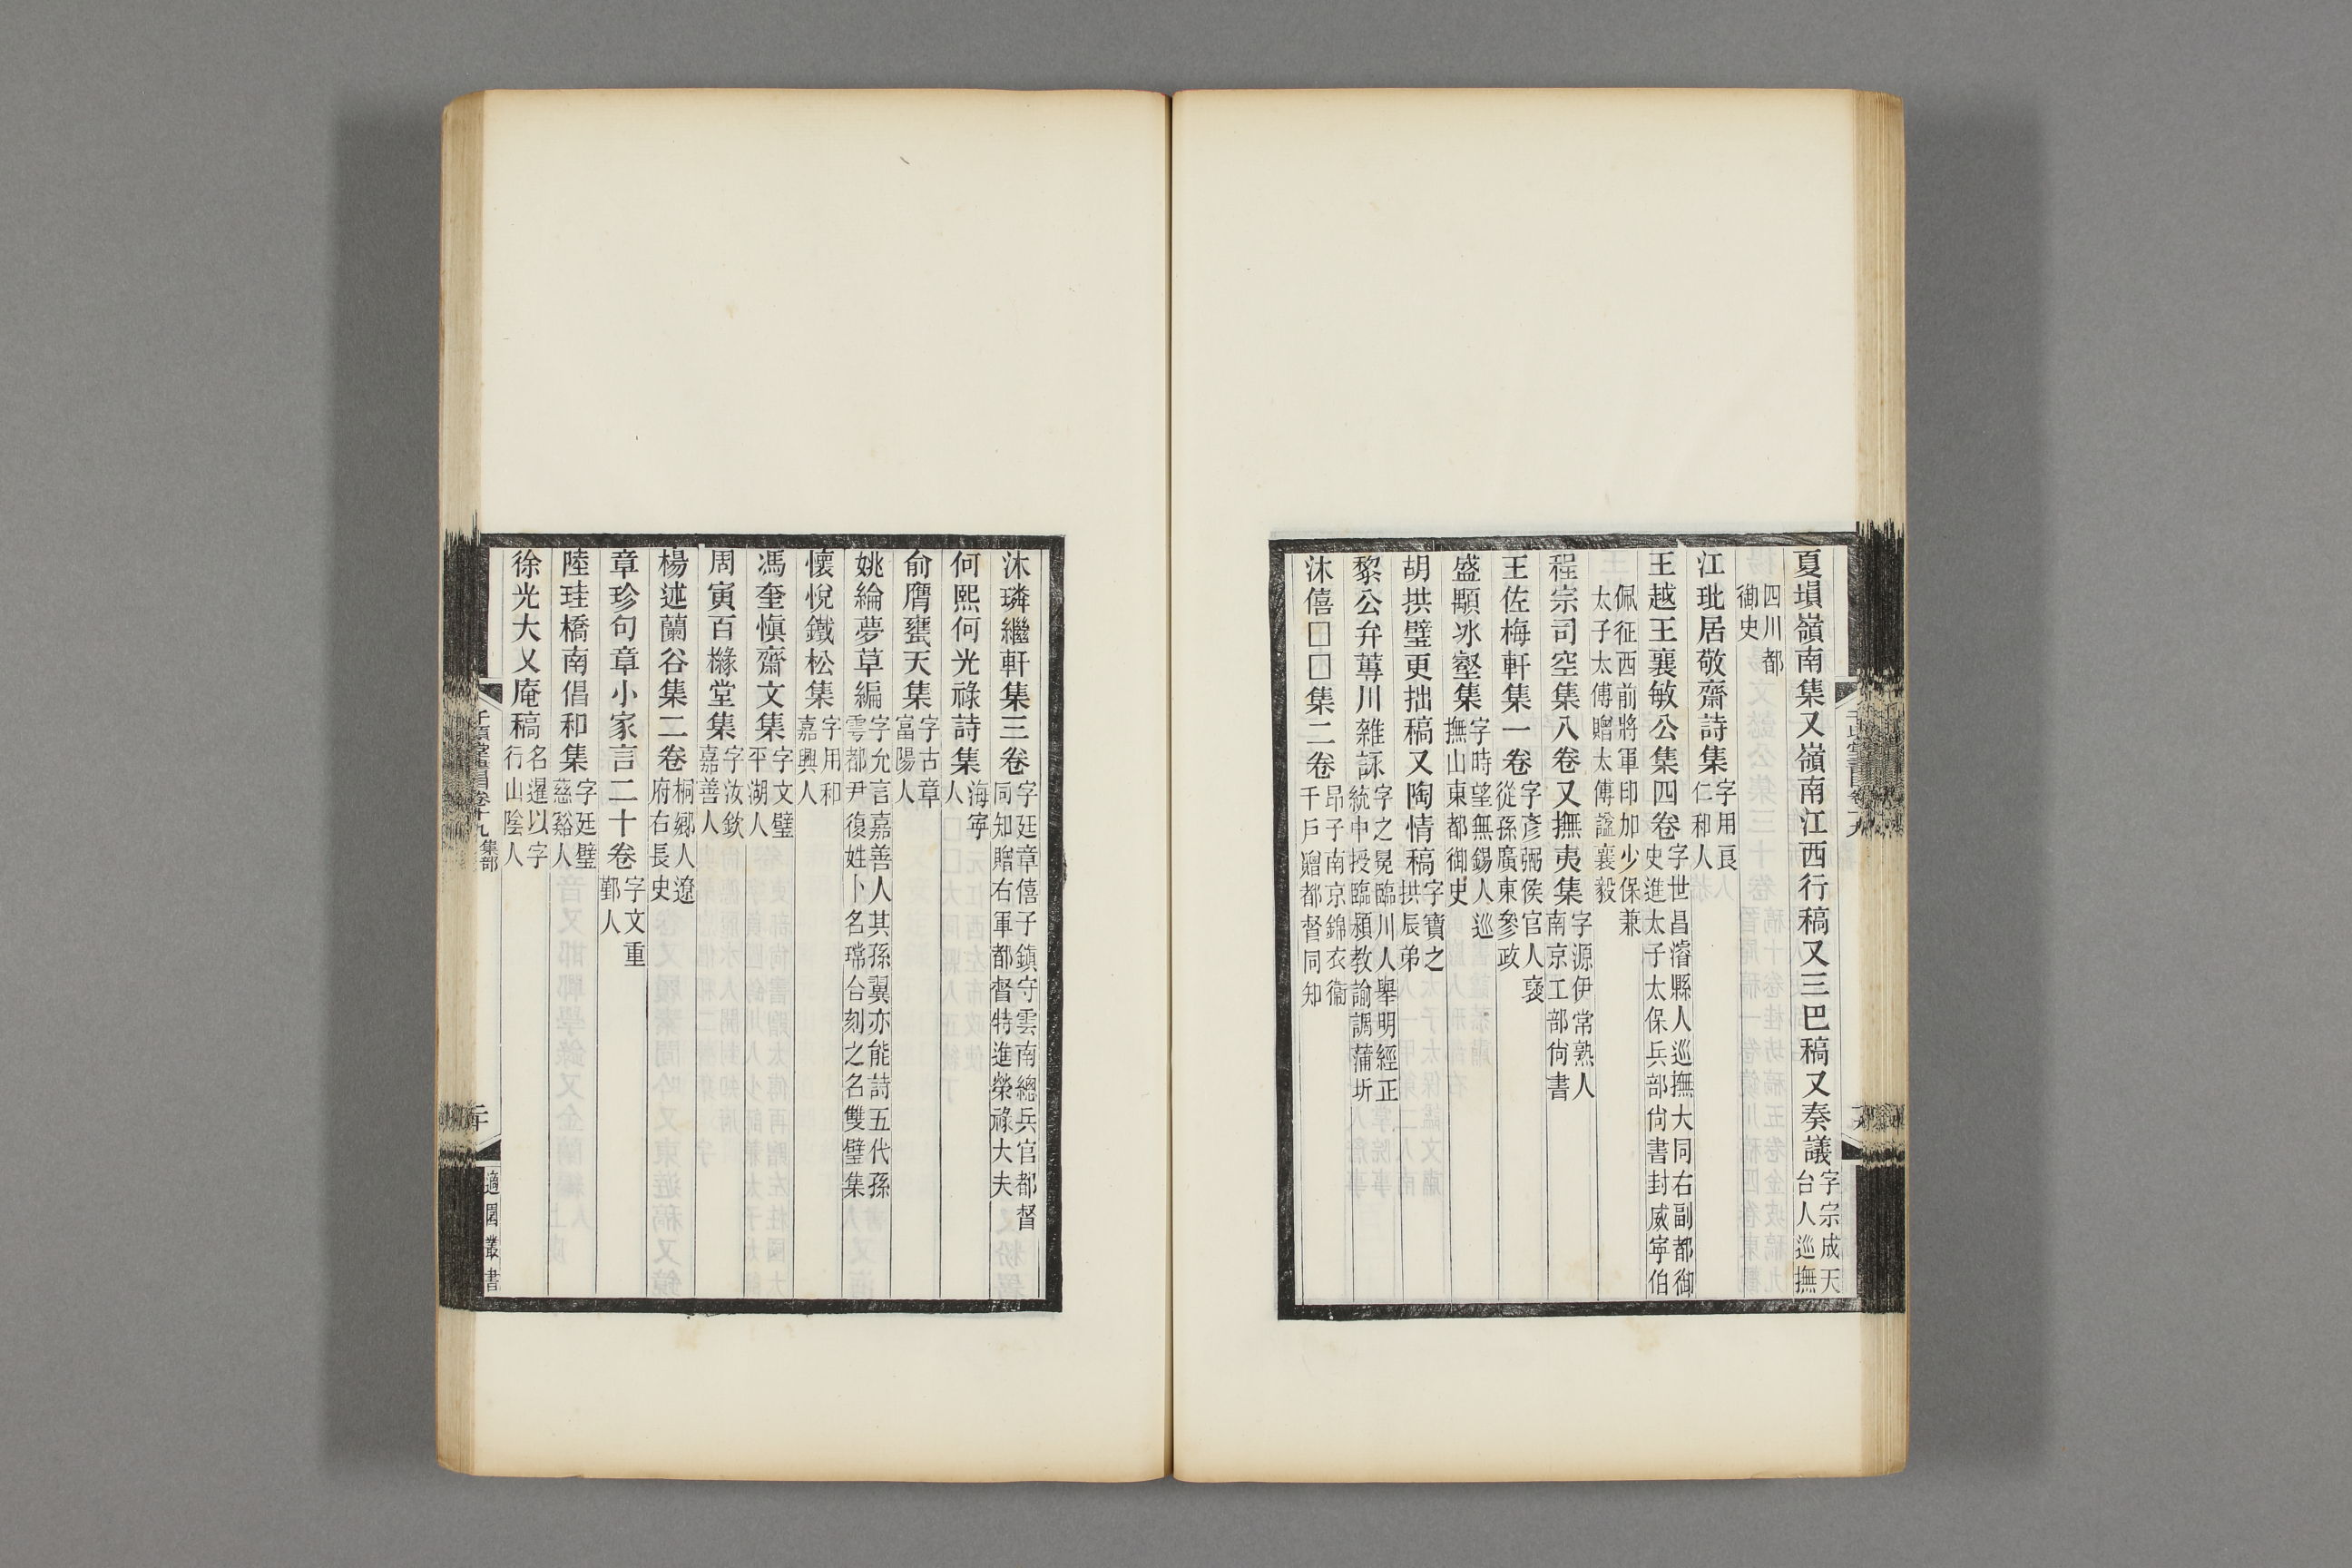 夏塤嶺南集又嶺南江西行稿又三巴稿又奏議字宗成天台人巡撫
四川都御史
江玭居敬齋詩集字用良仁和人
王越王襄敏公集四卷字世昌濬縣人巡撫大同右副都御史進太子太保兵部尙書封威寧伯
佩征西前將軍印加少保兼太子太傅贈太傅諡襄毅
程宗司空集八卷又撫夷集字源伊常熟人南京工部尙書
王佐梅軒集一卷字彥弼侯官人裦從孫廣東參政
盛顒冰壑集字時望無錫人巡撫山東都御史
胡拱璧更拙稿又陶情稿字寶之拱辰弟
黎公弁蓴川雜詠字之冕臨川人舉明經正統中授臨潁教諭調蒲圻
沐僖□□集二卷昂子南京錦衣衞千戶贈都督同知
沐璘繼軒集三卷字廷章僖子鎮守雲南總兵官都督同知贈右軍都督特進榮祿大夫
何熙何光祿詩集海寧人
俞膺甕天集字古章富陽人
姚綸夢草編字允言嘉善人其孫翼亦能詩五代孫雩都尹復姓卜名瑺台刻之名雙璧集
懷悅鐵松集字用和嘉興人
馮奎愼齋文集字文璧平湖人
周寅百櫞堂集字汝欽嘉善人
楊述蘭谷集二卷桐鄉人遼府右長史
章珍句章小家言二十卷字文重鄞人
陸珪橋南倡和集字廷璧慈谿人
徐光大乂庵稿名暹以字行山陰人
千頃堂書目卷十九 集部
二十
適園叢書